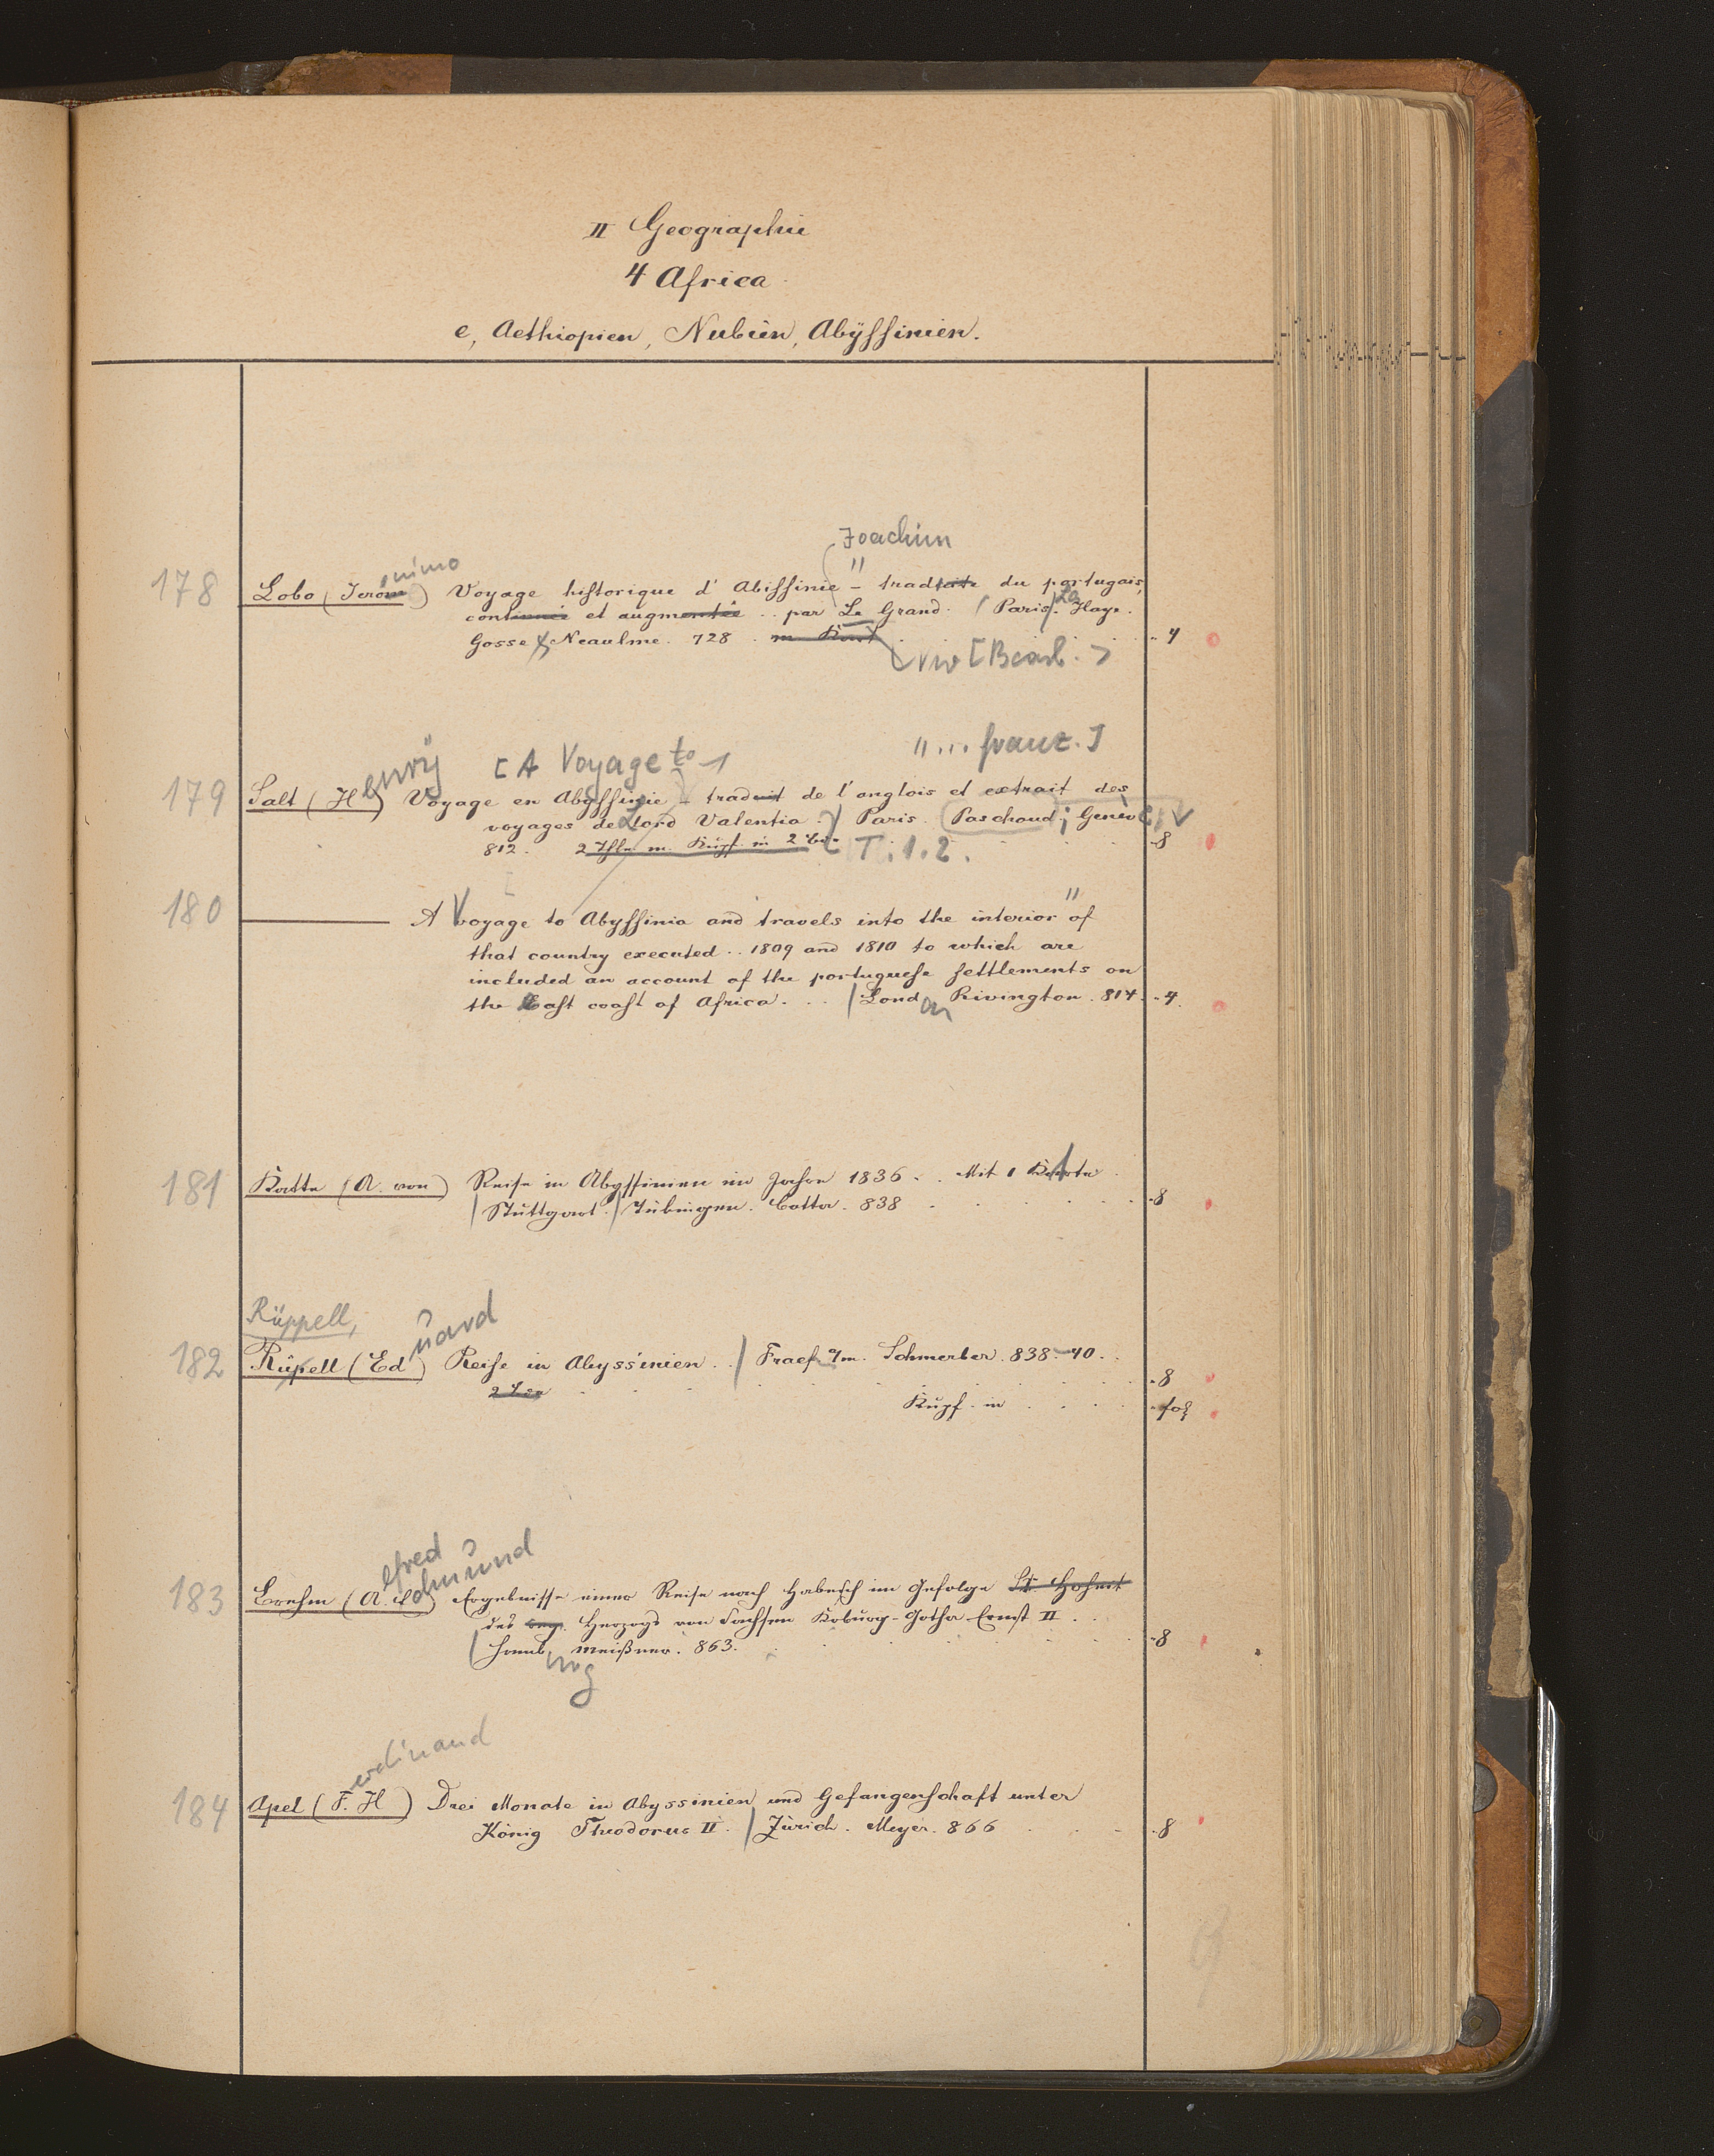 II Geographie
4 Africa
e, Aethiopien, Nubien, Abÿssinien.
Joachim
178 Lobo (Jerom) ónimo Voyage historique d' Abissinie " – traduite du portugais,
continuée et augmentée .. par Le Grand. (Paris). La Haye.
Gosse & Neaulme. 728 . m Kart . - 4
[Bearb.]
enrÿ [A Voyage to "... franz.]
179 Salt (H) Voyage en Abÿssinie – traduit de l'anglois et extrait des
voyages de Lord Valentia. Paris. Paschoud; Genève
812. 2 Thle m. Kupf. in 2 T. 1. 2. -8
180 ——— A Voyage to Abyssinia and travels into the interior " of
that country executed .. 1809 and 1810 to which are
included an account of the portuguese settlements on
the East coast of Africa. .. / London Rivington. 814. -4.
181 Katte (A. von) Reise in Abyssinien im Jahre 1836 . . Mit 1 Karte
/ Stuttgart. / Tübingen. Cotta. 838 -8
Rüppell,
182 Rüpell (Ed) uard Reise in Abyssinien .. / Fracf a/m. Schmerber. 838–40 ..
-8
Kupf. in . . . - fol
lfred dmund
183 Brehm (A. E) Ergebnisse einer Reise nach Habesch im Gefolge Sr. Hoheit
des reg. Herzogs von Sachsen Koburg-Gotha Ernst II . .
/ Hamb urg Meißner. 863. -8
erdinand
184 Apel (F. H) Drei Monate in Abyssinien und Gefangenschaft unter
König Theodorus II. / Zürich. Meyer. 866 -8